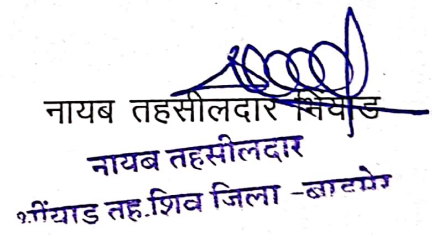 नायब तहसीलदार भिंयाड
नायब तहसीलदार
भींयाड तह.शिव जिला -बाडमेर